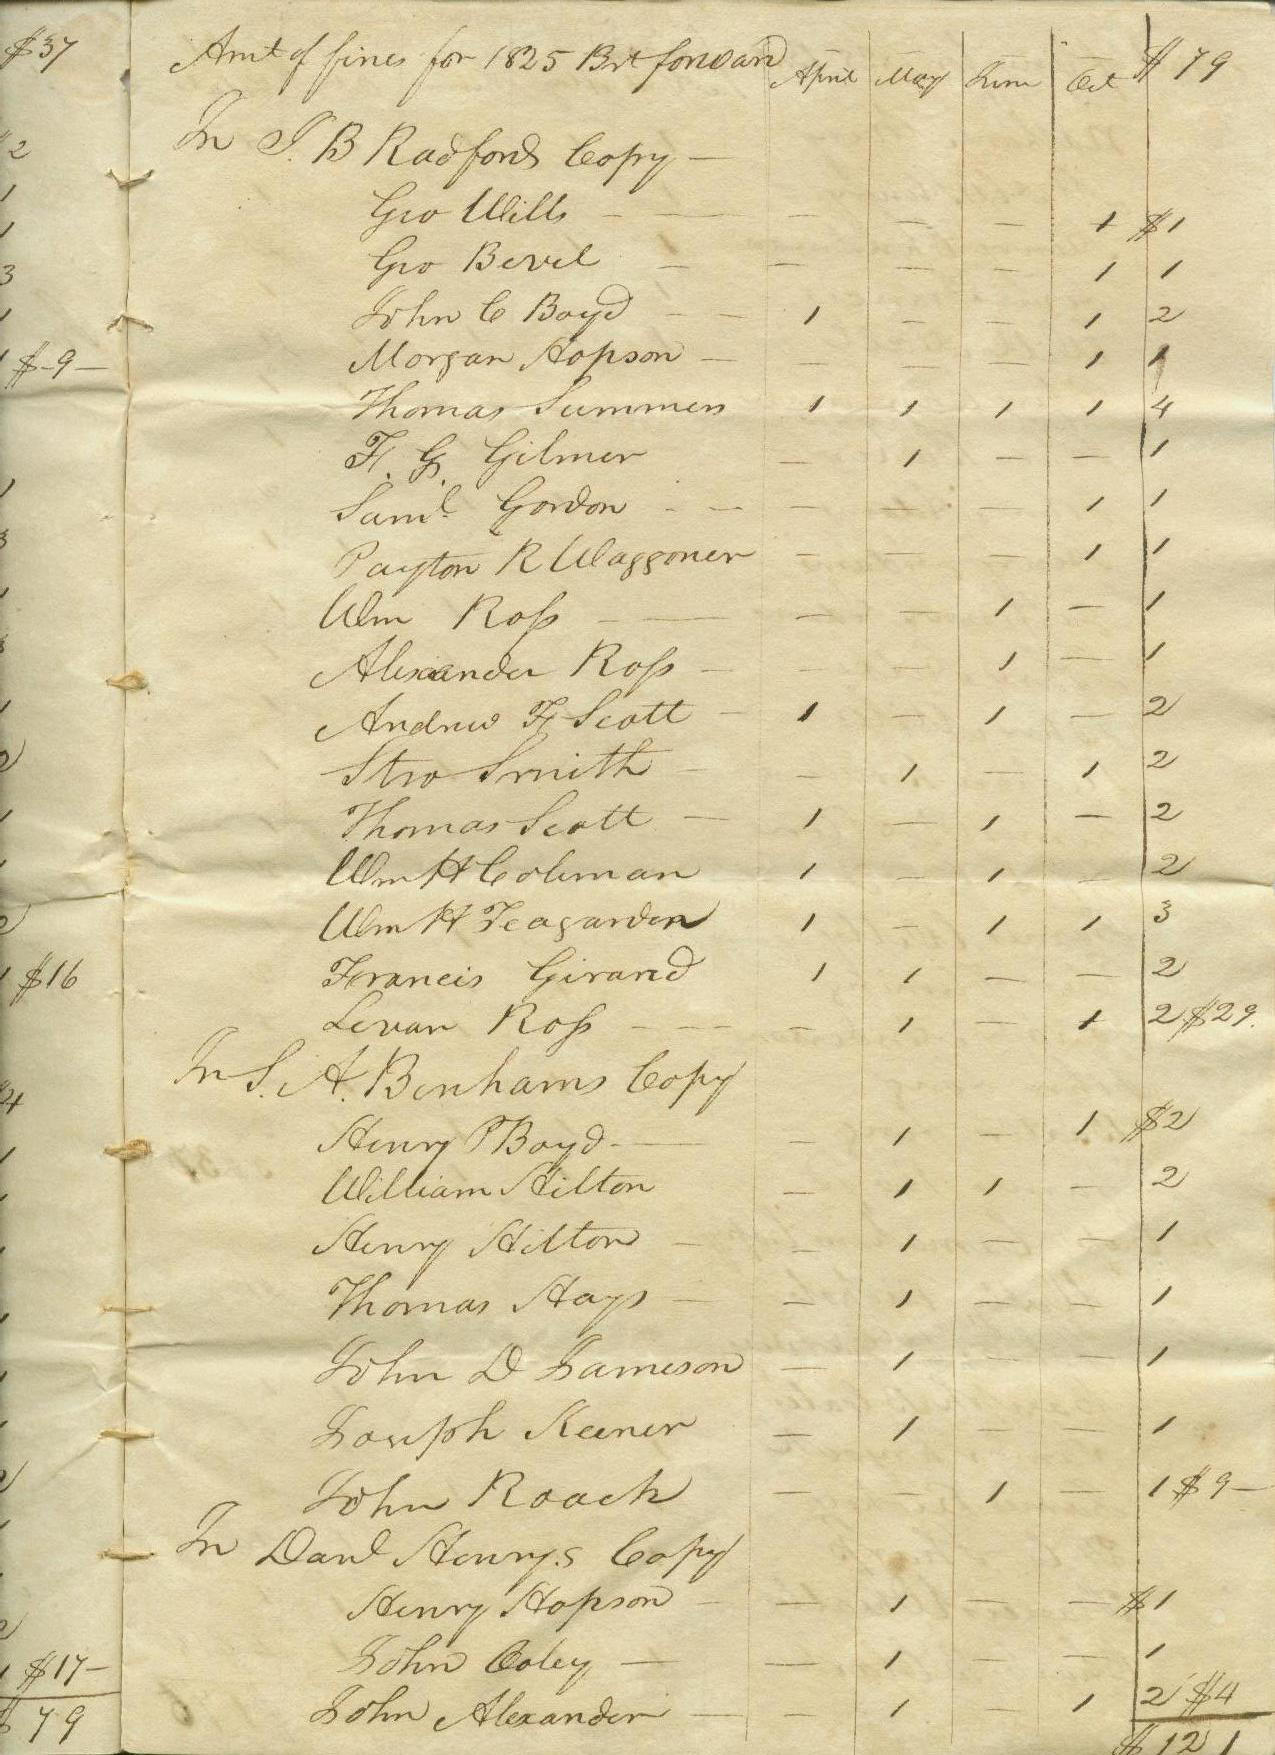 $37
Amt of fines for 1825 Brt forward April May June Oct $79
In J. B Radfords Copy —
Geo Wills — — — — — 1 $1
Geo Bevel — — — — 1 1
John C Boyd — — 1 — — 1 2
Morgan Hopson — — — — 1 1
$-9-
Thomas Summers 1 1 1 1 4
F. G. Gilmer — 1 — — 1
Saml Gordon — — — — — 1 1
Payton R Waggoner — — — 1 1
Wm Ross — — — — 1 — 1
Alexander Ross — — — 1 — 1
Andrew F Scott — 1 — 1 — 2
Smith — — 1 — 1 2
Thomas Scott — 1 — 1 — 2
Wm H Coleman 1 — 1 — 2
Wm H Teagarden 1 — 1 1 3
$16
Francis Girard 1 1 — — 2
Levan Ross — — — 1 — 1 2 $29.
In S. A. Benhams Copy
Henry P Boyd — — 1 — 1 $2
William Hilton — 1 1 — 2
Henry Hilton — — 1 — — 1
Thomas Hays — — 1 — — 1
John D Jameson — 1 — — 1
Joseph Keener — 1 — — 1
John Roach — — 1 — 1 $9—
In Danl Henrys Copy
Henry Hopson — — 1 — — $1
John Coley — — 1 — — 1
$17—
John Alexander — — 1 — 1 2 $4
$79
$121